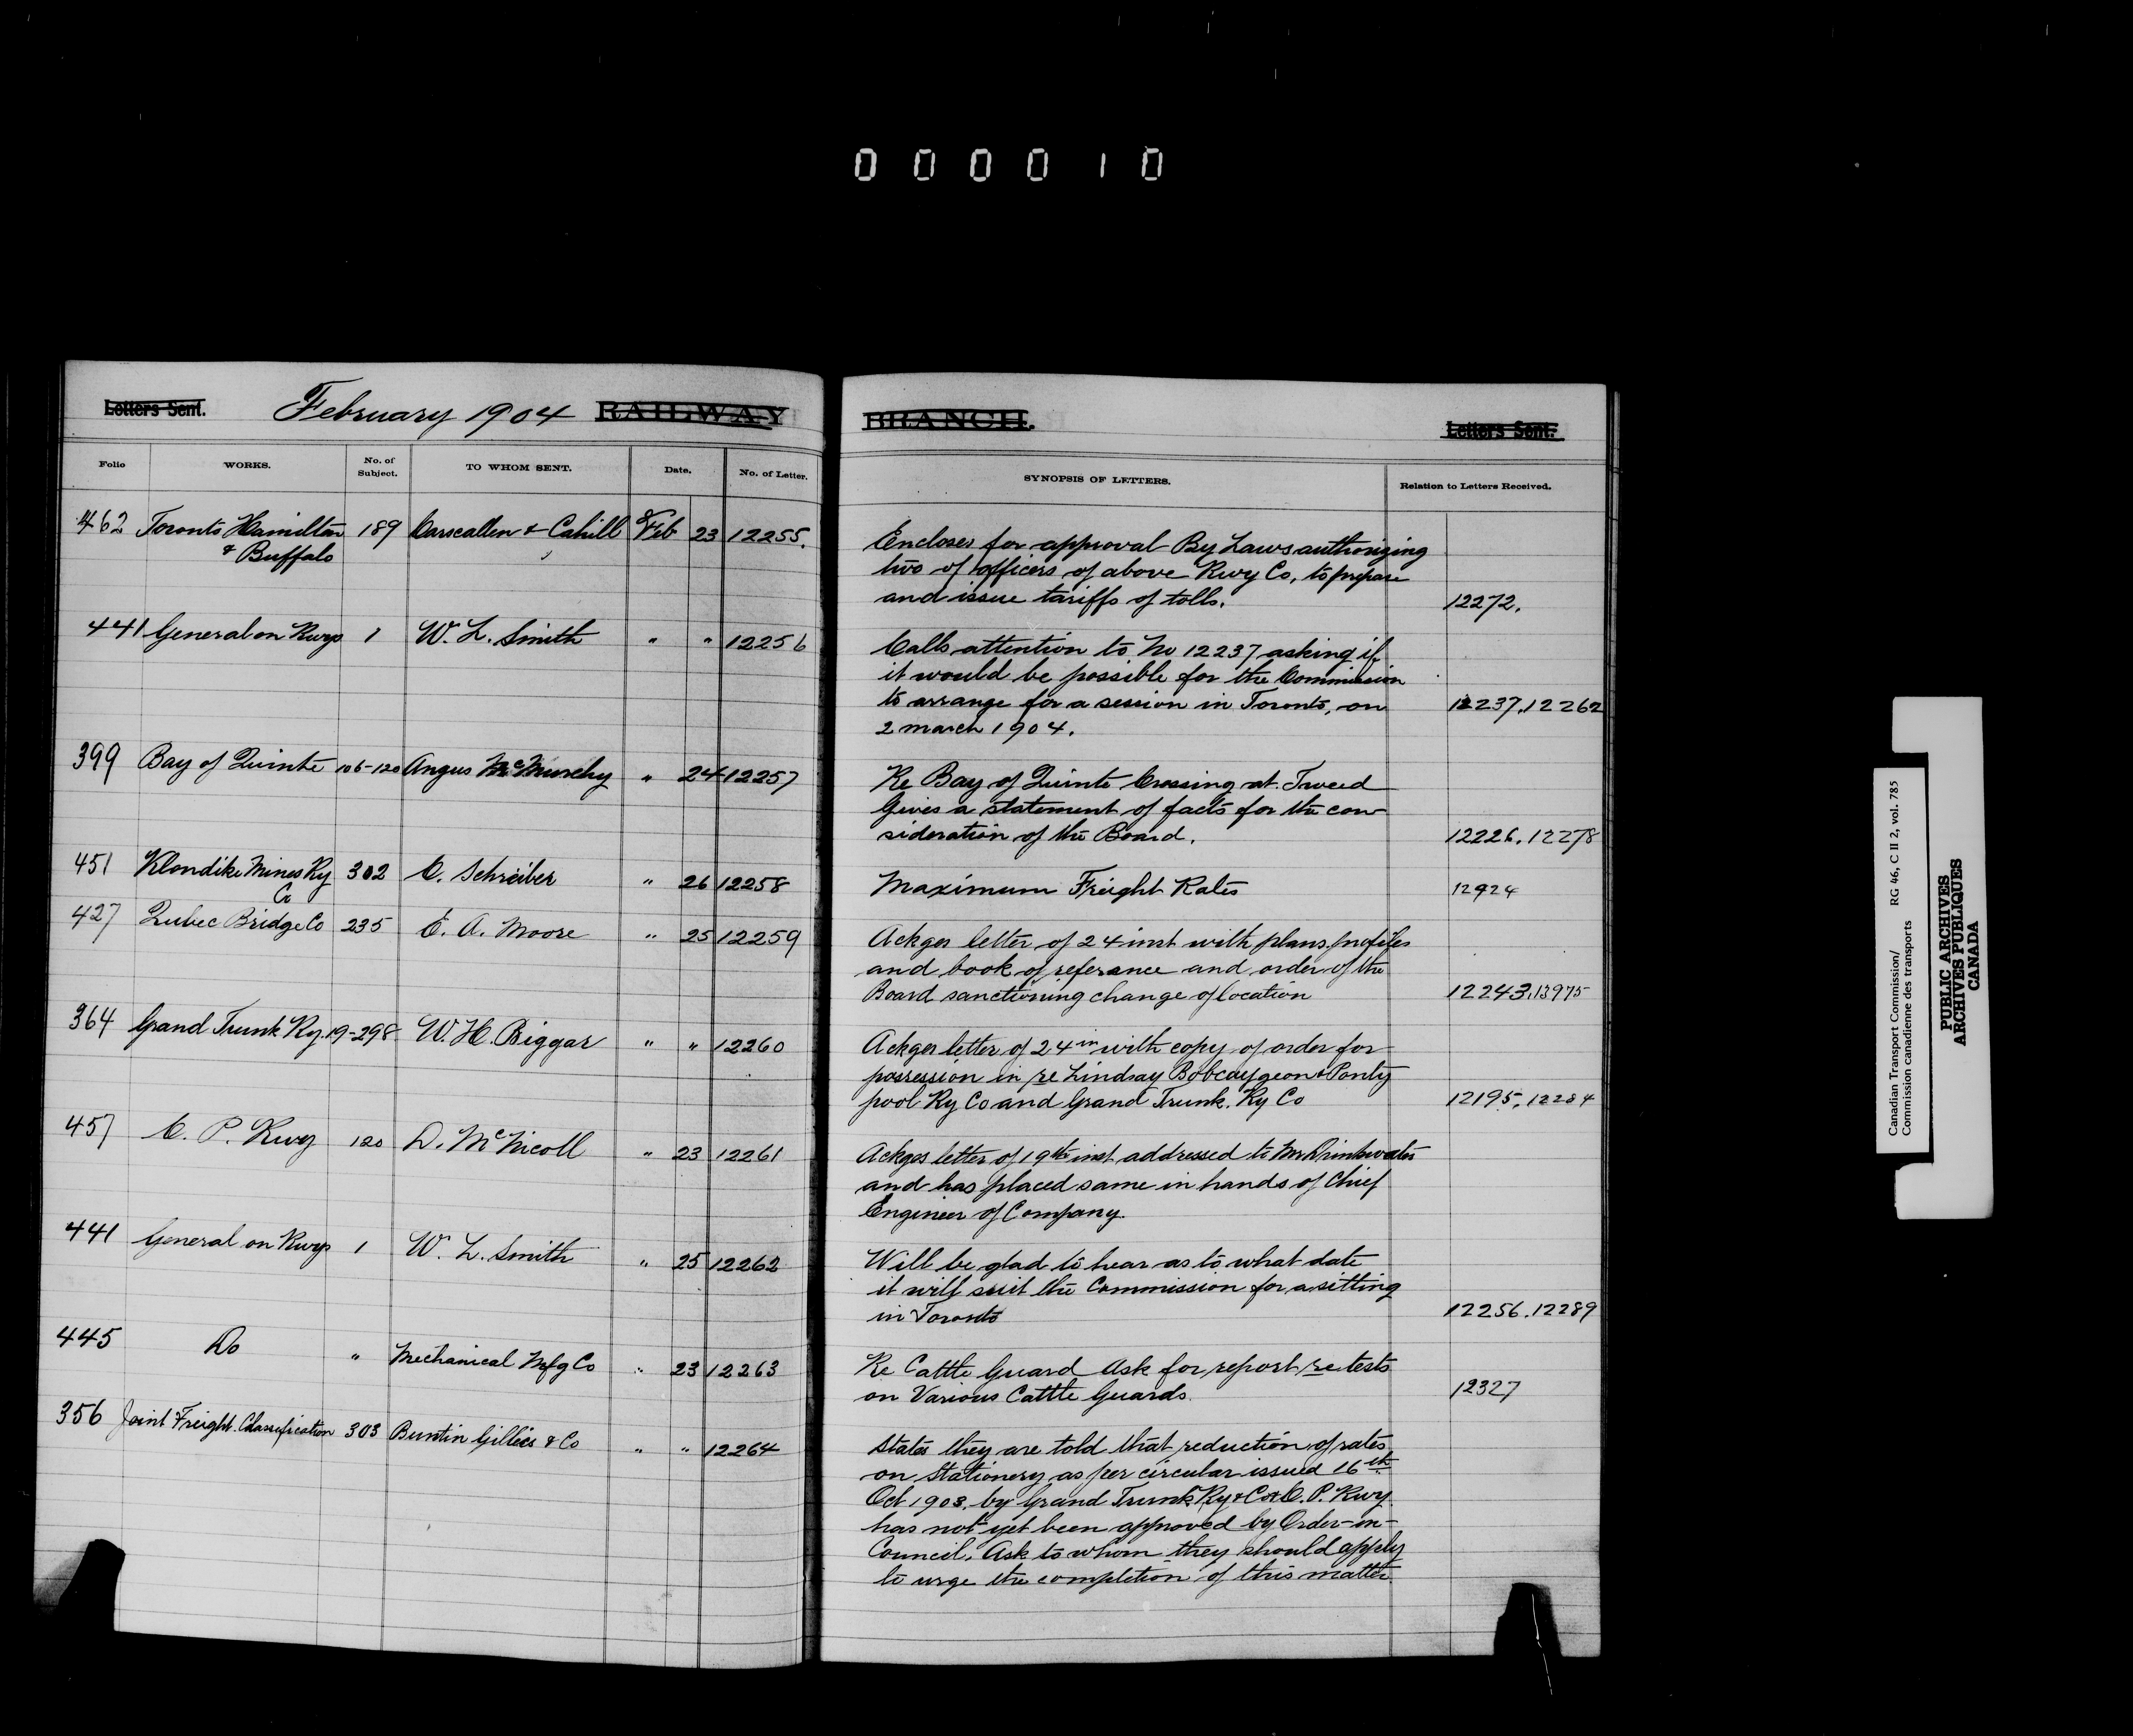 000010
Letters Sent. February 1904 RAILWAY BRANCH. Letters Sent.
Folio WORKS. No. of Subject. TO WHOM SENT. Date. No. of Letter. SYNOPSIS OF LETTERS. Relation to Letters Received.
462 Toronto Hamilton 189 Carscallen & Cahill Feb 23 12255.
& Buffalo
Encloses for approval By Laws authorizing
two of officers of above Rwy Co, to prepare
and issue tariffs of tolls. 12272.
441 General on Rwys 1 W. L. Smith " " 12256
Calls attention to No 12237 asking if
it would be possible for the Commission
to arrange for a session in Toronto, on 12237,12262
2 march 1904.
399 Bay of Quinte 106-120 Angus McMurchy " 24 12257
Re Bay of Quinte Crossing at Tweed
Gives a statement of facts for the con
sideration of the Board. 12226,12278
451 Klondike Mines Ry 302 C. Schreiber " 26 12258
Co
Maximum Freight Rates 12924
427 Qubec Bridge Co 235 E. A. Moore " 25 12259
Ackges letter of 24 inst with plans, profiles
and book of referance and order of the
Board sanctioning change of location 12243,13975
364 Grand Trunk Ry. 19-298. W. H. Biggar " " 12260
Ackges letter of 24 in with copy of order for
possession in re Lindsay Bobcaygeon & Ponty
pool Ry Co and Grand Trunk. Ry Co 12195,12284
457 C. P. Rwy 120 D. McNicoll " 23 12261
Ackges letter of 19th inst addressed to Mr Drinkwater
and has placed same in hands of Chief
Engineer of Company.
441 General on Rwys 1 W. L. Smith " 25 12262
Will be glad to hear as to what date
it will suit the Commission for a sitting
in Toronto 12256.12289
445 Do " Mechanical Mfg Co " 23 12263
Re Cattle Guard Ask for report re tests
on Various Cattle Guards. 12327
356 Joint Freight Classification 303 Buntin Gillies & Co " " 12264
States they are told that reduction of rates
on Stationery as per circular issued 16th
Oct 1903. by Grand Trunk Ry & Co & C. P. Rwy.
has not yet been approved by Order-in-
Council. Ask to whom they should apply
to urge the completion of this matter.
Canadian Transport Commission/ RG 46, C II 2, vol. 785
Commission canadienne des transports
PUBLIC ARCHIVES
ARCHIVES PUBLIQUES
CANADA